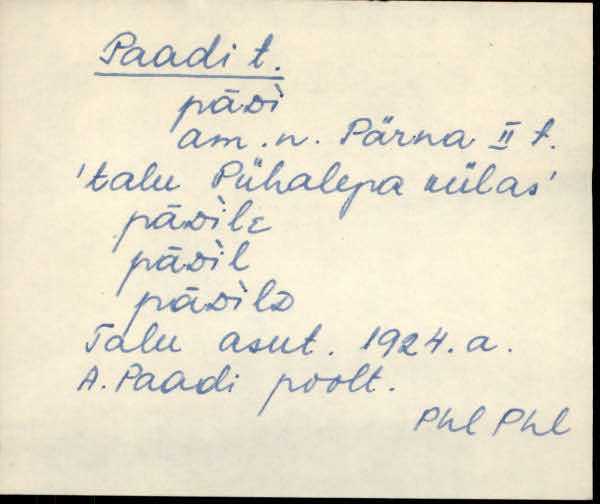 Paadi t.
pāᴅì
am. n. Pärna II t.
'talu Pühalepa külas'
pāᴅìlɛ
pāᴅìl
pāᴅìlᴅ
Talu asut. 1924. a.
A. Paadi poolt.
Phl Phl